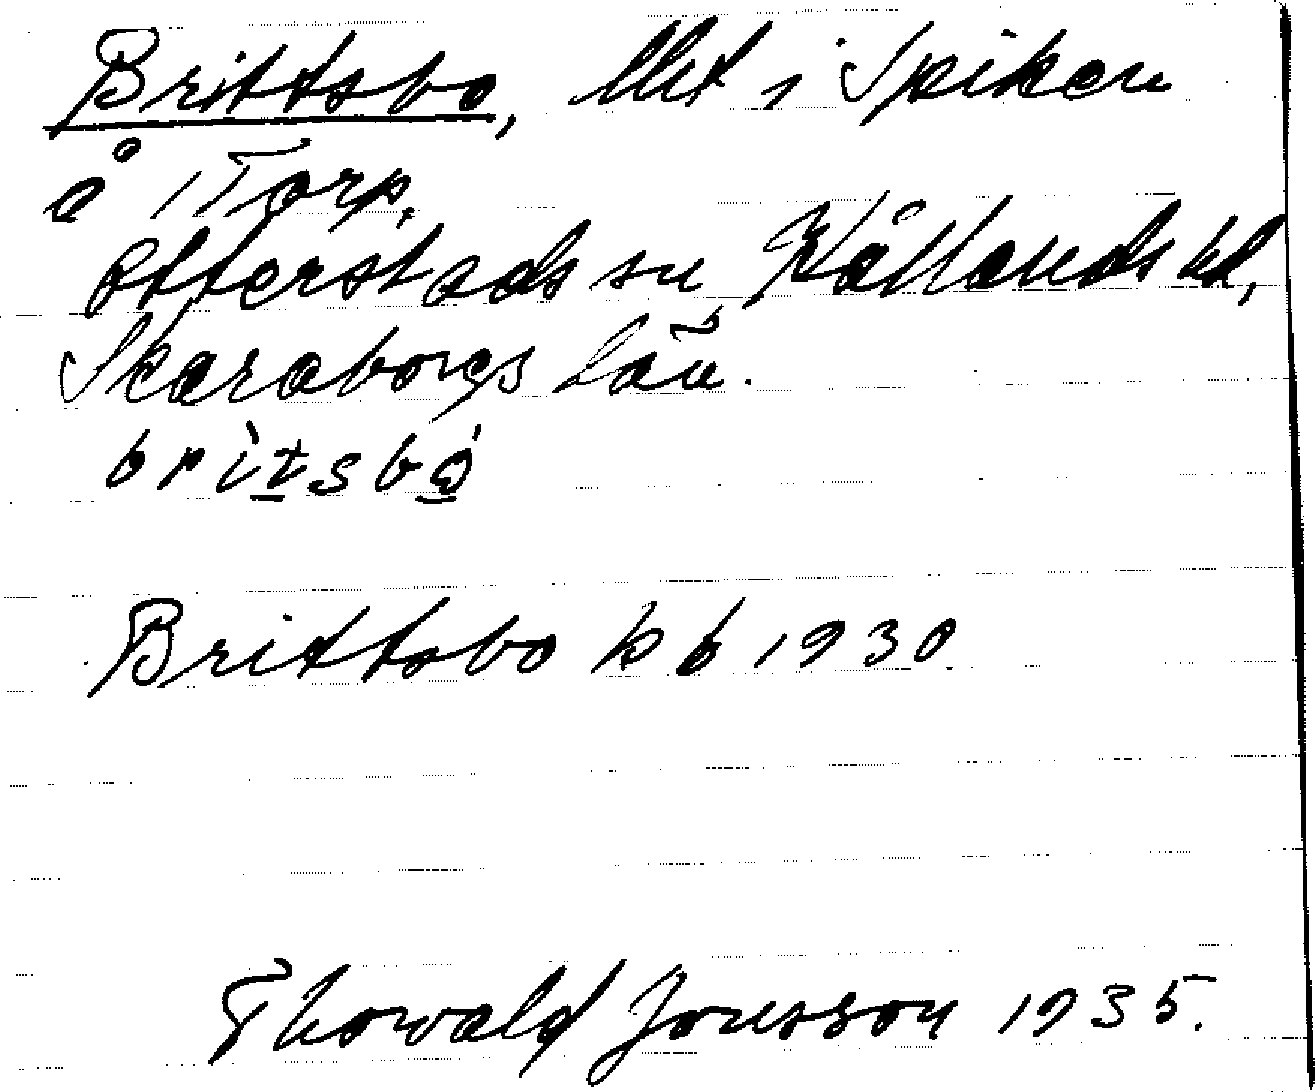 Brittsbo, lht i Spiken
å 1 Torp,
Otterstads sn Kållands hd,
Skaraborgs län.
brìtsbó
Brittsbo kb 1930
Thorvald Jonsson 1935.